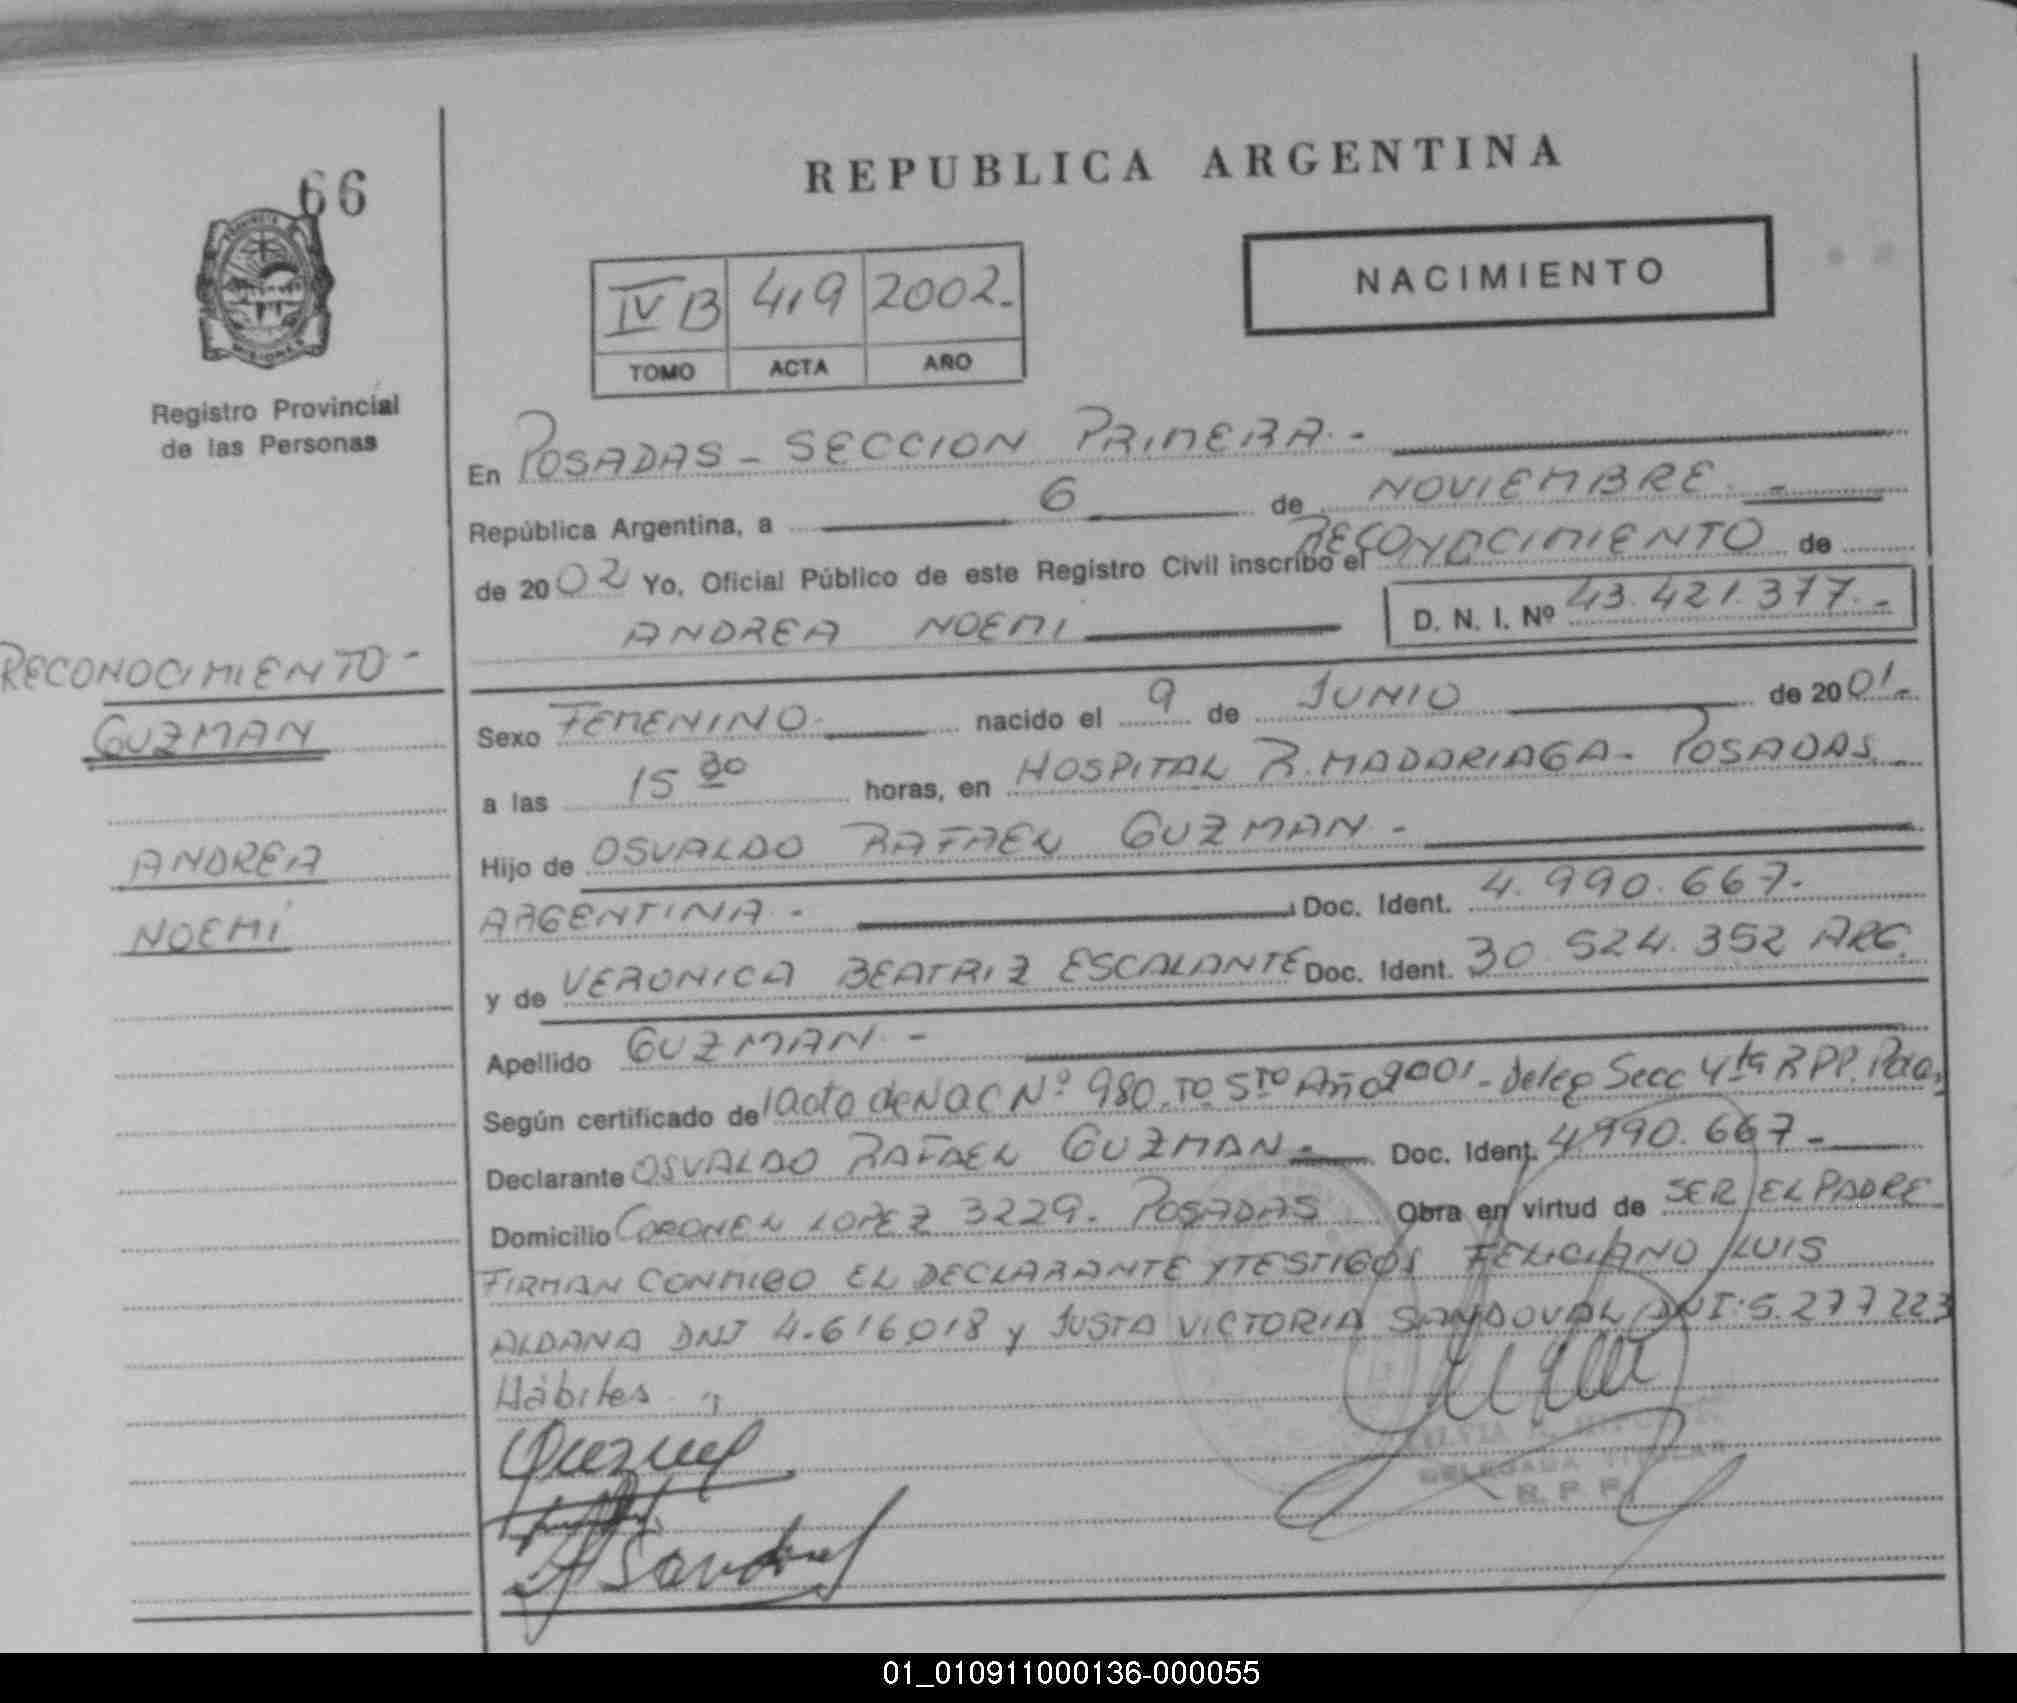 66
REPUBLICA ARGENTINA
NACIMIENTO
IV B 419 2002.-
TOMO ACTA AÑO
PROVINCIA MISIONES
Registro Provincial
de las Personas
En POSADAS - SECCION PRIMERA.-
República Argentina, a 6 de NOVIEMBRE.-
de 2002 Yo, Oficial Público de este Registro Civil inscribo el RECONOCIMIENTO de
ANDREA NOEMI D. N. I. Nº 43.421.377.-
RECONOCIMIENTO-
GUZMAN
ANDREA
NOEMÍ
Sexo FEMENINO. nacido el 9 de JUNIO de 2001.-
a las 15 30 horas, en HOSPITAL R. MADARIAGA- POSADAS.
Hijo de OSVALDO RAFAEL GUZMAN.-
ARGENTINA.- Doc. Ident. 4.990.667.-
y de VERONICA BEATRIZ ESCALANTE Doc. Ident. 30.524.352 ARG.
Apellido GUZMAN.-
Según certificado de Acta de NAC Nº 980. Tº 5TO Año 2001.- Deleg Secc 4ta RPP.
Declarante OSVALDO RAFAEL GUZMAN.- Doc. Ident. 4990.667.-
Domicilio CORONEL LOPEZ 3229. POSADAS Obra en virtud de SER EL PADRE
FIRMAN CONMIGO EL DECLARANTE Y TESTIGOS FELICIANO LUIS
ALDANA DNI 4.616.018 y JUSTA VICTORIA SANDOVAL DNI: 5.277.223
Hábiles
Sandoval
DELEGADA TITULAR
R. P. P.
01_010911000136-000055